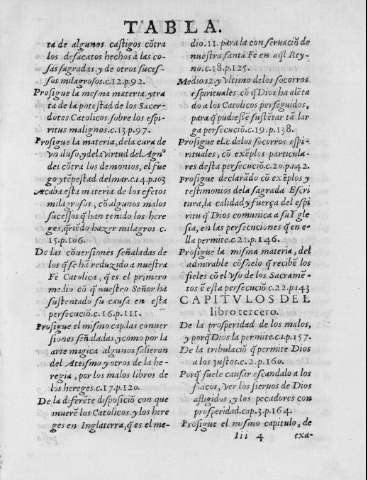 TABLA.
ta de algunos castigos cõtra
los desacatos hechos a las co-
sas sagradas, y de otros suces-
sos milagrosos. c.12. p.92.
Prosigue la mesma materia, y tra
ta de la potestad de los Sacer-
dotes Catolicos sobre los espi-
ritus malignos. c.13. p.97.
Prosigue la materia, de la cara de
los demonios, el fue-
go y tẽpestad del mar. c.14. p.103
Acaba esta materia de los efetos
milagrosos, cõ algunos malos
sucessos q̃ han tenido los here
ges, q̃riẽdo hazer milagros c.
15. p.106.
De las cõversiones señaladas de
los q̃ se hã reduzido a nuestra
Fè Catolica, q̃ es el primero
medio cõ q̃ nuestro Señor ha
sustentado su causa en esta
persecuciõ. c.16. p.111.
Prosigue el mismo cap. las conver
siones señaladas, y como por la
arte magica algunos salieron
del Ateismo y otros de la he-
regia, por los malos libros de
los hereges. c.17. p.120.
De la diferẽte disposiciõ con que
muerẽ los Catolicos y los here
ges en Inglaterra, q̃ es el me-
dio. 11. para la conseruaciõ de
nuestra santa Fè en aq̃l Rey-
no. c.18. p.125.
Medio 12 y vltimo de los socorros
espirituales cõ q̃ Dios ha alẽta
do a los Catolicos perseguidos,
para q̃ pudiessẽ sustẽtar tã lar
ga persecuciõ. c.19. p.138.
Prosigue el c. de los socorros espi-
rituales, cõ exẽplos particula-
res desta persecuciõ. c.20. p.142.
Prosigue declarãdo cõ exẽplos y
testimonios de la sagrada Escri
tura, la calidad y fuerça del espi
ritu q̃ Dios comunica a su Igle
sia, en las persecuciones q̃ en e-
lla permite. c.21. p.146.
Prosigue la misma materia, del
admirable cõsuelo q̃ recibẽ los
fieles cõ el vso de los Sacramẽ-
tos ẽ esta persecuciõ. c.22. p.143
CAPITVLOS DEL
libro tercero.
De la prosperidad de los malos,
y porq̃ Dios la permite. c.1. p.157.
De la tribulaciõ q̃ permite Dios
a los justos. c.2. p.160.
Porq̃ suele causar escandalo a los
flacos, ver los siervos de Dios
afligidos, y los pecadores con
prosperidad. cap.3. p.164.
Prosigue el mismo capitulo, de
Iii 4 exa-